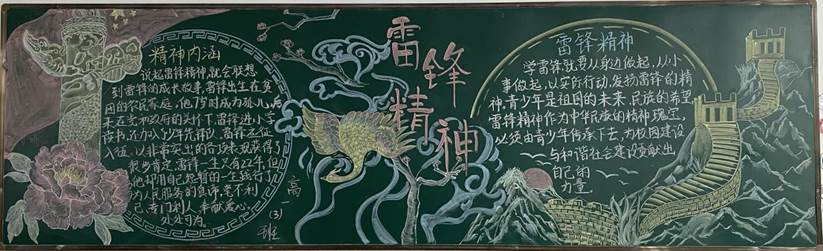 精神内涵
说起雷锋精神,就会联想
到雷锋的成长故事,雷锋出生在贫
困的农民家庭,他7岁时成为孤儿,后
来在党和政府的关怀下,雷锋进小学
读书,还加入了少年先锋队。雷锋还应征
入伍,以非常突出的
很多肯定。雷锋一生只有22年,但
他却用自己短暂的一生践行了
为人民服务的真谛,毫不利
己,专门利人,奉献爱心,
处处可为。
雷锋精神
高一(3)班
雷锋精神
学雷锋就要从身边做起,从小
事做起,以实际行动,发扬雷锋的精
神,青少年是祖国的未来,民族的希望
雷锋精神作为中华民族的精神瑰宝,
必须由青少年传承下去,为校园建设
与和谐社会建设贡献出
自己的
力量